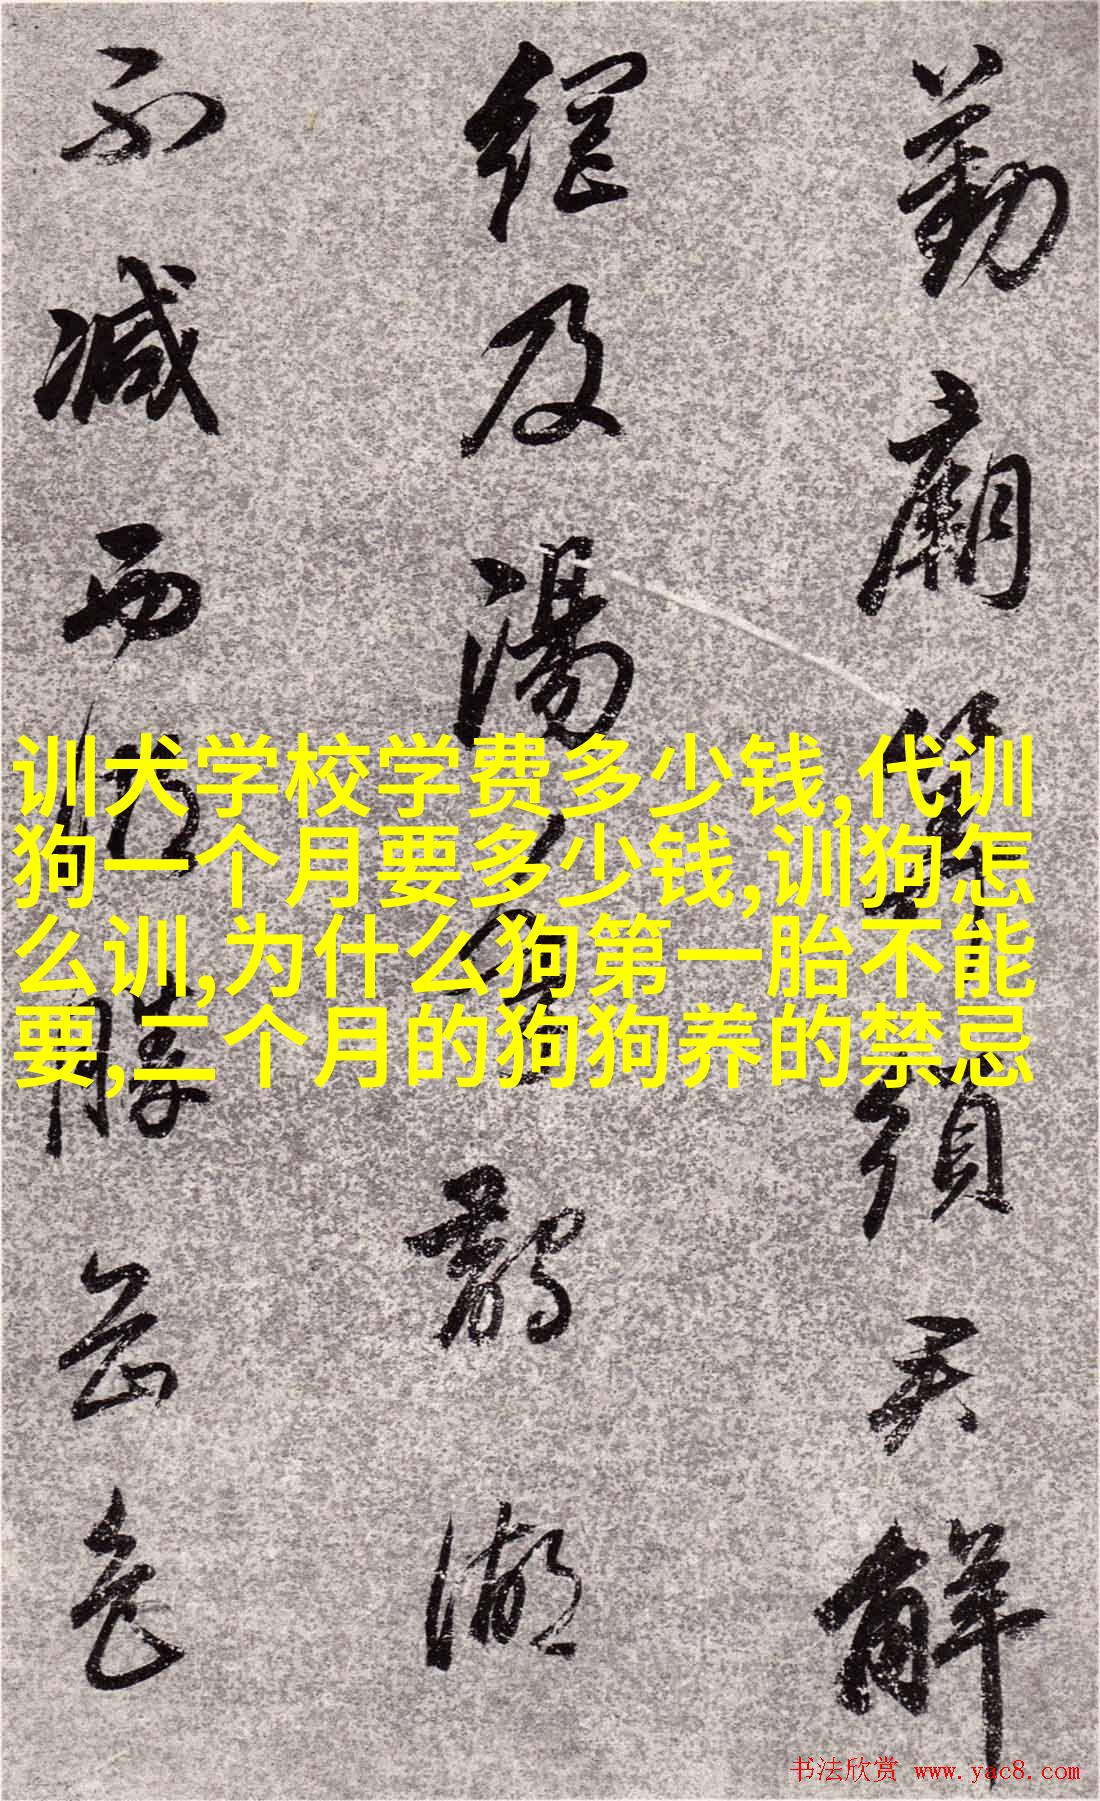 勤廟須君解
網及湯鵲湖
不減西湖勝岳色
训犬学校学费多少钱,代训
狗一个月要多少钱,训狗怎
么训,为什么狗第一胎不能
要,二个月的狗狗养的禁忌
书法欣赏 www.yac8.com